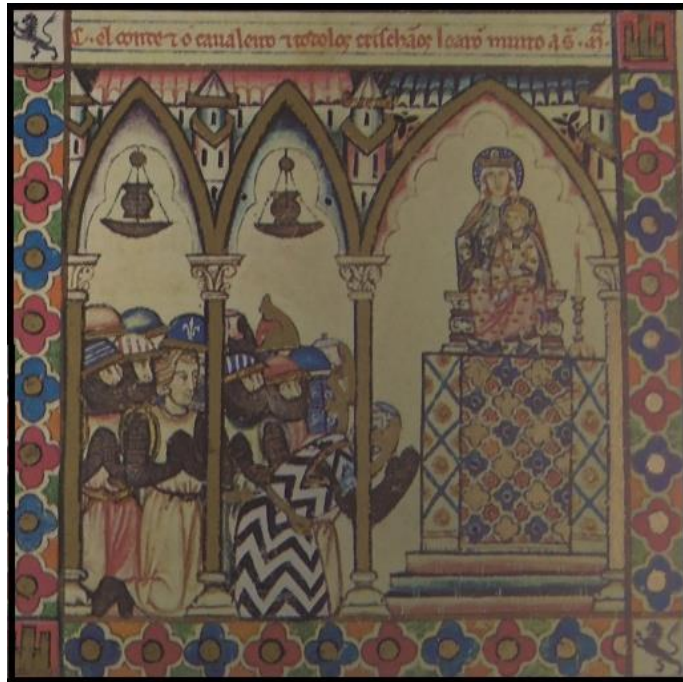 C̃. el conde ⁊ o caualeiro ⁊ todolos crischãos loarõ muito a s̃. m̃.